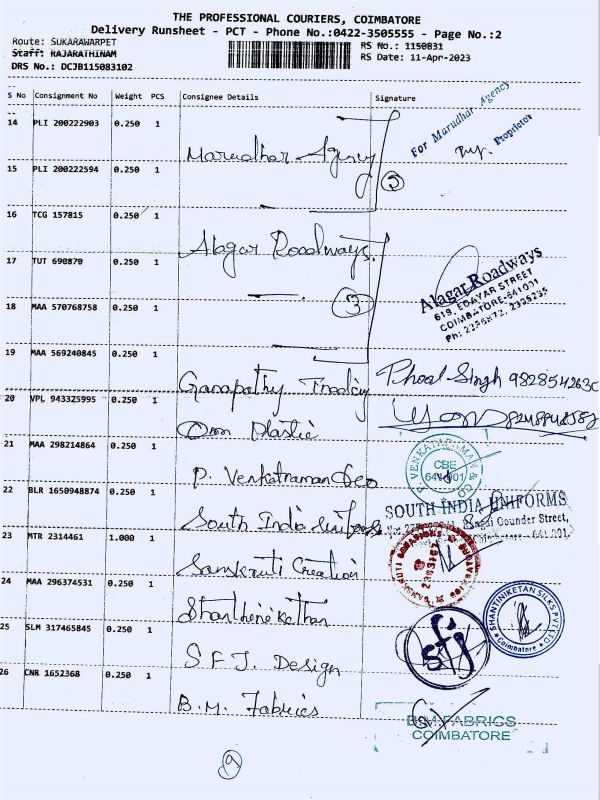 THE PROFESSIONAL COURIERS, COIMBATORE
Delivery Runsheet - PCT - Phone No.:0422-3505555 - Page No.:2
Route: SUKARAWARPET
Staff: RAJARATHINAM
DRS No.: DCJB115083102
RS No.: 1150831
RS Date: 11-Apr-2023
S No Consignment No Weight PCS Consignee Details Signature
14 PLI 200222903 0.250 1
Marudhar Agency
For Marudhar Agency
Proprietor
15 PLI 200222594 0.250 1
3
16 TCG 157815 0.250 1
Alagar Roadways
17 TUT 690870 0.250 1
Alagar Roadways
619, EDAYAR STREET
COIMBATORE-641001
18 MAA 570768758 0.250 1
3
19 MAA 569240845 0.250 1
Ganapathy Trading
Phool Singh
20 VPL 943325995 0.250 1
Om Plastic
21 MAA 298214864 0.250 1
P. Venkatraman & co
VENKATRAMAN & CO
CBE
641 001
22 BLR 1650948874 0.250 1
South India Uniforms
SOUTH INDIA UNIFORMS
Gounder Street,
Coimbatore - 641 001.
23 MTR 2314461 1.000 1
Samskruti Creation
24 MAA 296374531 0.250 1
Shanthinikethan
SHANTINIKETAN SILKS PVT LTD
Coimbatore
25 SLM 317465845 0.250 1
S F J. Design
sfj
26 CNR 1652368 0.250 1
B.M. Fabrics
B.M.FABRICS
COIMBATORE
9